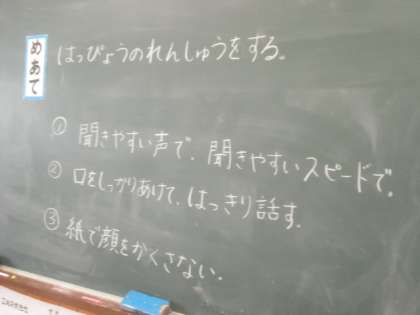 めあて
はっぴょうのれんしゅうをする。
① 聞きやすい声で、聞きやすいスピードで。
② 口をしっかりあけて、はっきり話す。
③ 紙で顔をかくさない。